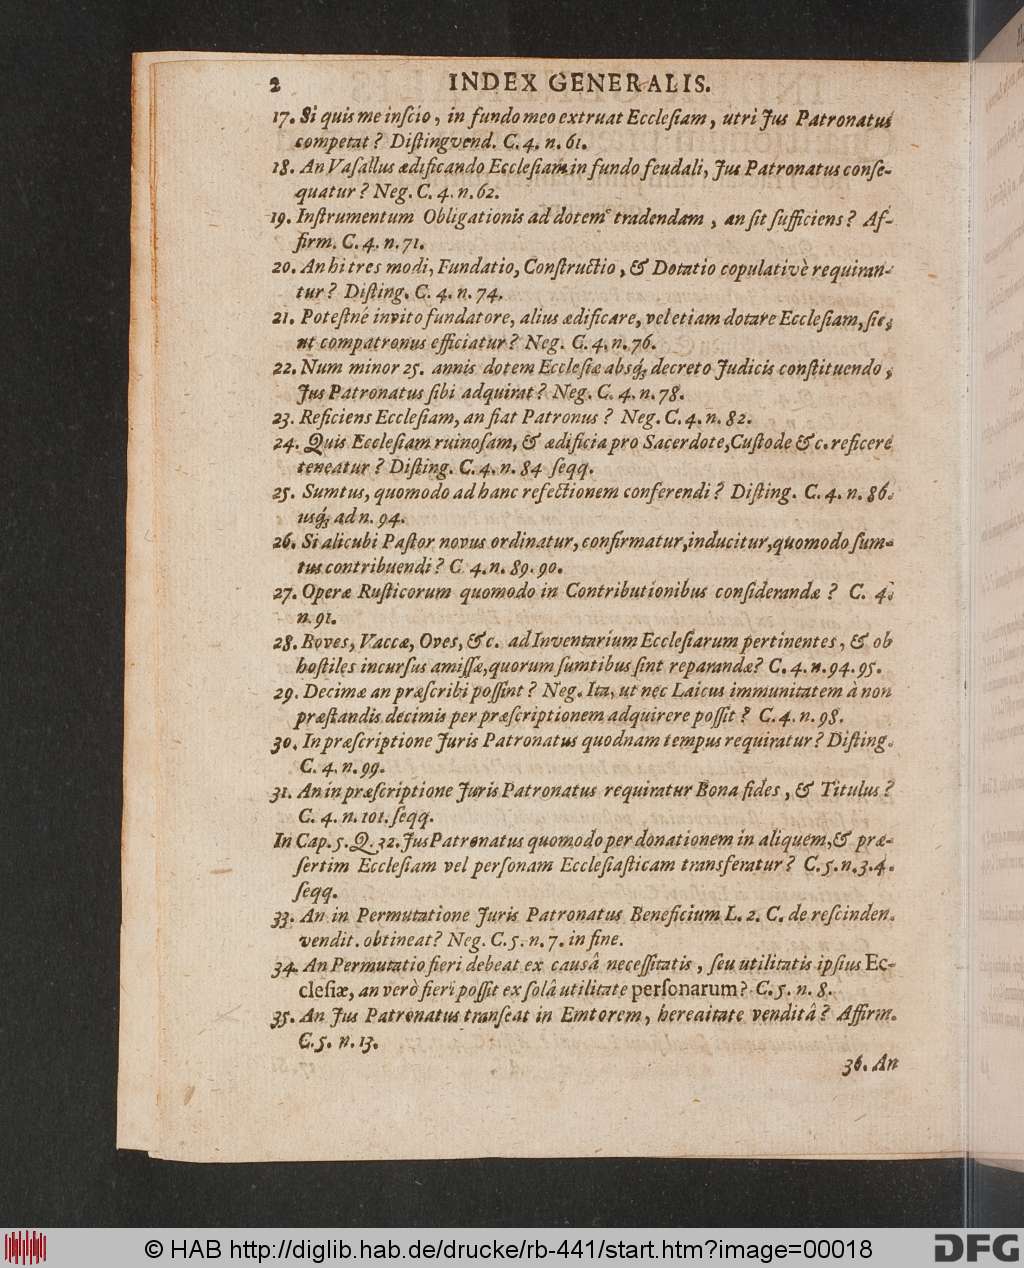 2 INDEX GENERALIS.
17. Si quis me inſcio, in fundo meo extruat Eccleſiam, utri Jus Patronatus
competat? Diſtingvend. C. 4. n. 61.
18. An Vaſallus ædificando Eccleſiam in fundo feudali, Jus Patronatus conſe-
quatur? Neg. C. 4. n. 62.
19. Inſtrumentum Obligationis ad dotem tradendam, an ſit ſufficiens? Af-
firm. C. 4. n. 71.
20. An hi tres modi, Fundatio, Conſtructio, & Dotatio copulativè requiran-
tur? Diſting. C. 4. n. 74.
21. Poteſtné invito fundatore, alius ædificare, vel etiam dotare Eccleſiam, ſic,
ut compatronus efficiatur? Neg. C. 4. n. 76.
22. Num minor 25. annis dotem Eccleſiæ absq́; decreto Judicis conſtituendo,
Jus Patronatus ſibi adquirat? Neg. C. 4. n. 78.
23. Reficiens Eccleſiam, an fiat Patronus? Neg. C. 4. n. 82.
24. Quis Eccleſiam ruinoſam, & ædificia pro Sacerdote, Cuſtode & c. reficere
teneatur? Diſting. C. 4. n. 84 ſeqq.
25. Sumtus, quomodo ad hanc refectionem conferendi? Diſting. C. 4. n. 86.
usq́; ad n. 94.
26. Si alicubi Paſtor novus ordinatur, confirmatur, inducitur, quomodo ſum-
tus contribuendi? C 4. n. 89. 90.
27. Operæ Ruſticorum quomodo in Contributionibus conſiderandæ? C. 4.
n. 91.
28. Boves, Vaccæ, Oves, & c. ad Inventarium Eccleſiarum pertinentes, & ob
hoſtiles incurſus amiſſæ, quorum ſumtibus ſint reparandæ? C. 4. n. 94. 95.
29. Decimæ an præſcribi poſſint? Neg. Ita, ut nec Laicus immunitatem à non
præſtandis decimis per præſcriptionem adquirere poſſit? C. 4. n. 98.
30. In præſcriptione Juris Patronatus quodnam tempus requiratur? Diſting.
C. 4. n. 99.
31. An in præſcriptione Juris Patronatus requiratur Bona fides, & Titulus?
C. 4. n. 101. ſeqq.
In Cap. 5. Q. 32. Jus Patronatus quomodo per donationem in aliquem, & præ-
ſertim Eccleſiam vel perſonam Eccleſiaſticam transferatur? C. 5. n. 3. 4.
ſeqq.
33. An in Permutatione Juris Patronatus Beneficium L. 2. C. de reſcinden.
vendit. obtineat? Neg. C. 5. n. 7. in fine.
34. An Permutatio fieri debeat ex causâ neceſſitatis, ſeu utilitatis ipſius Ec-
cleſiæ, an verò fieri poſſit ex ſolâ utilitate perſonarum? C. 5. n. 8.
35. An Jus Patronatus tranſeat in Emtorem, hereditate venditâ? Affirm.
C. 5. n. 13.
36. An
© HAB http://diglib.hab.de/drucke/rb-441/start.htm?image=00018
DFG